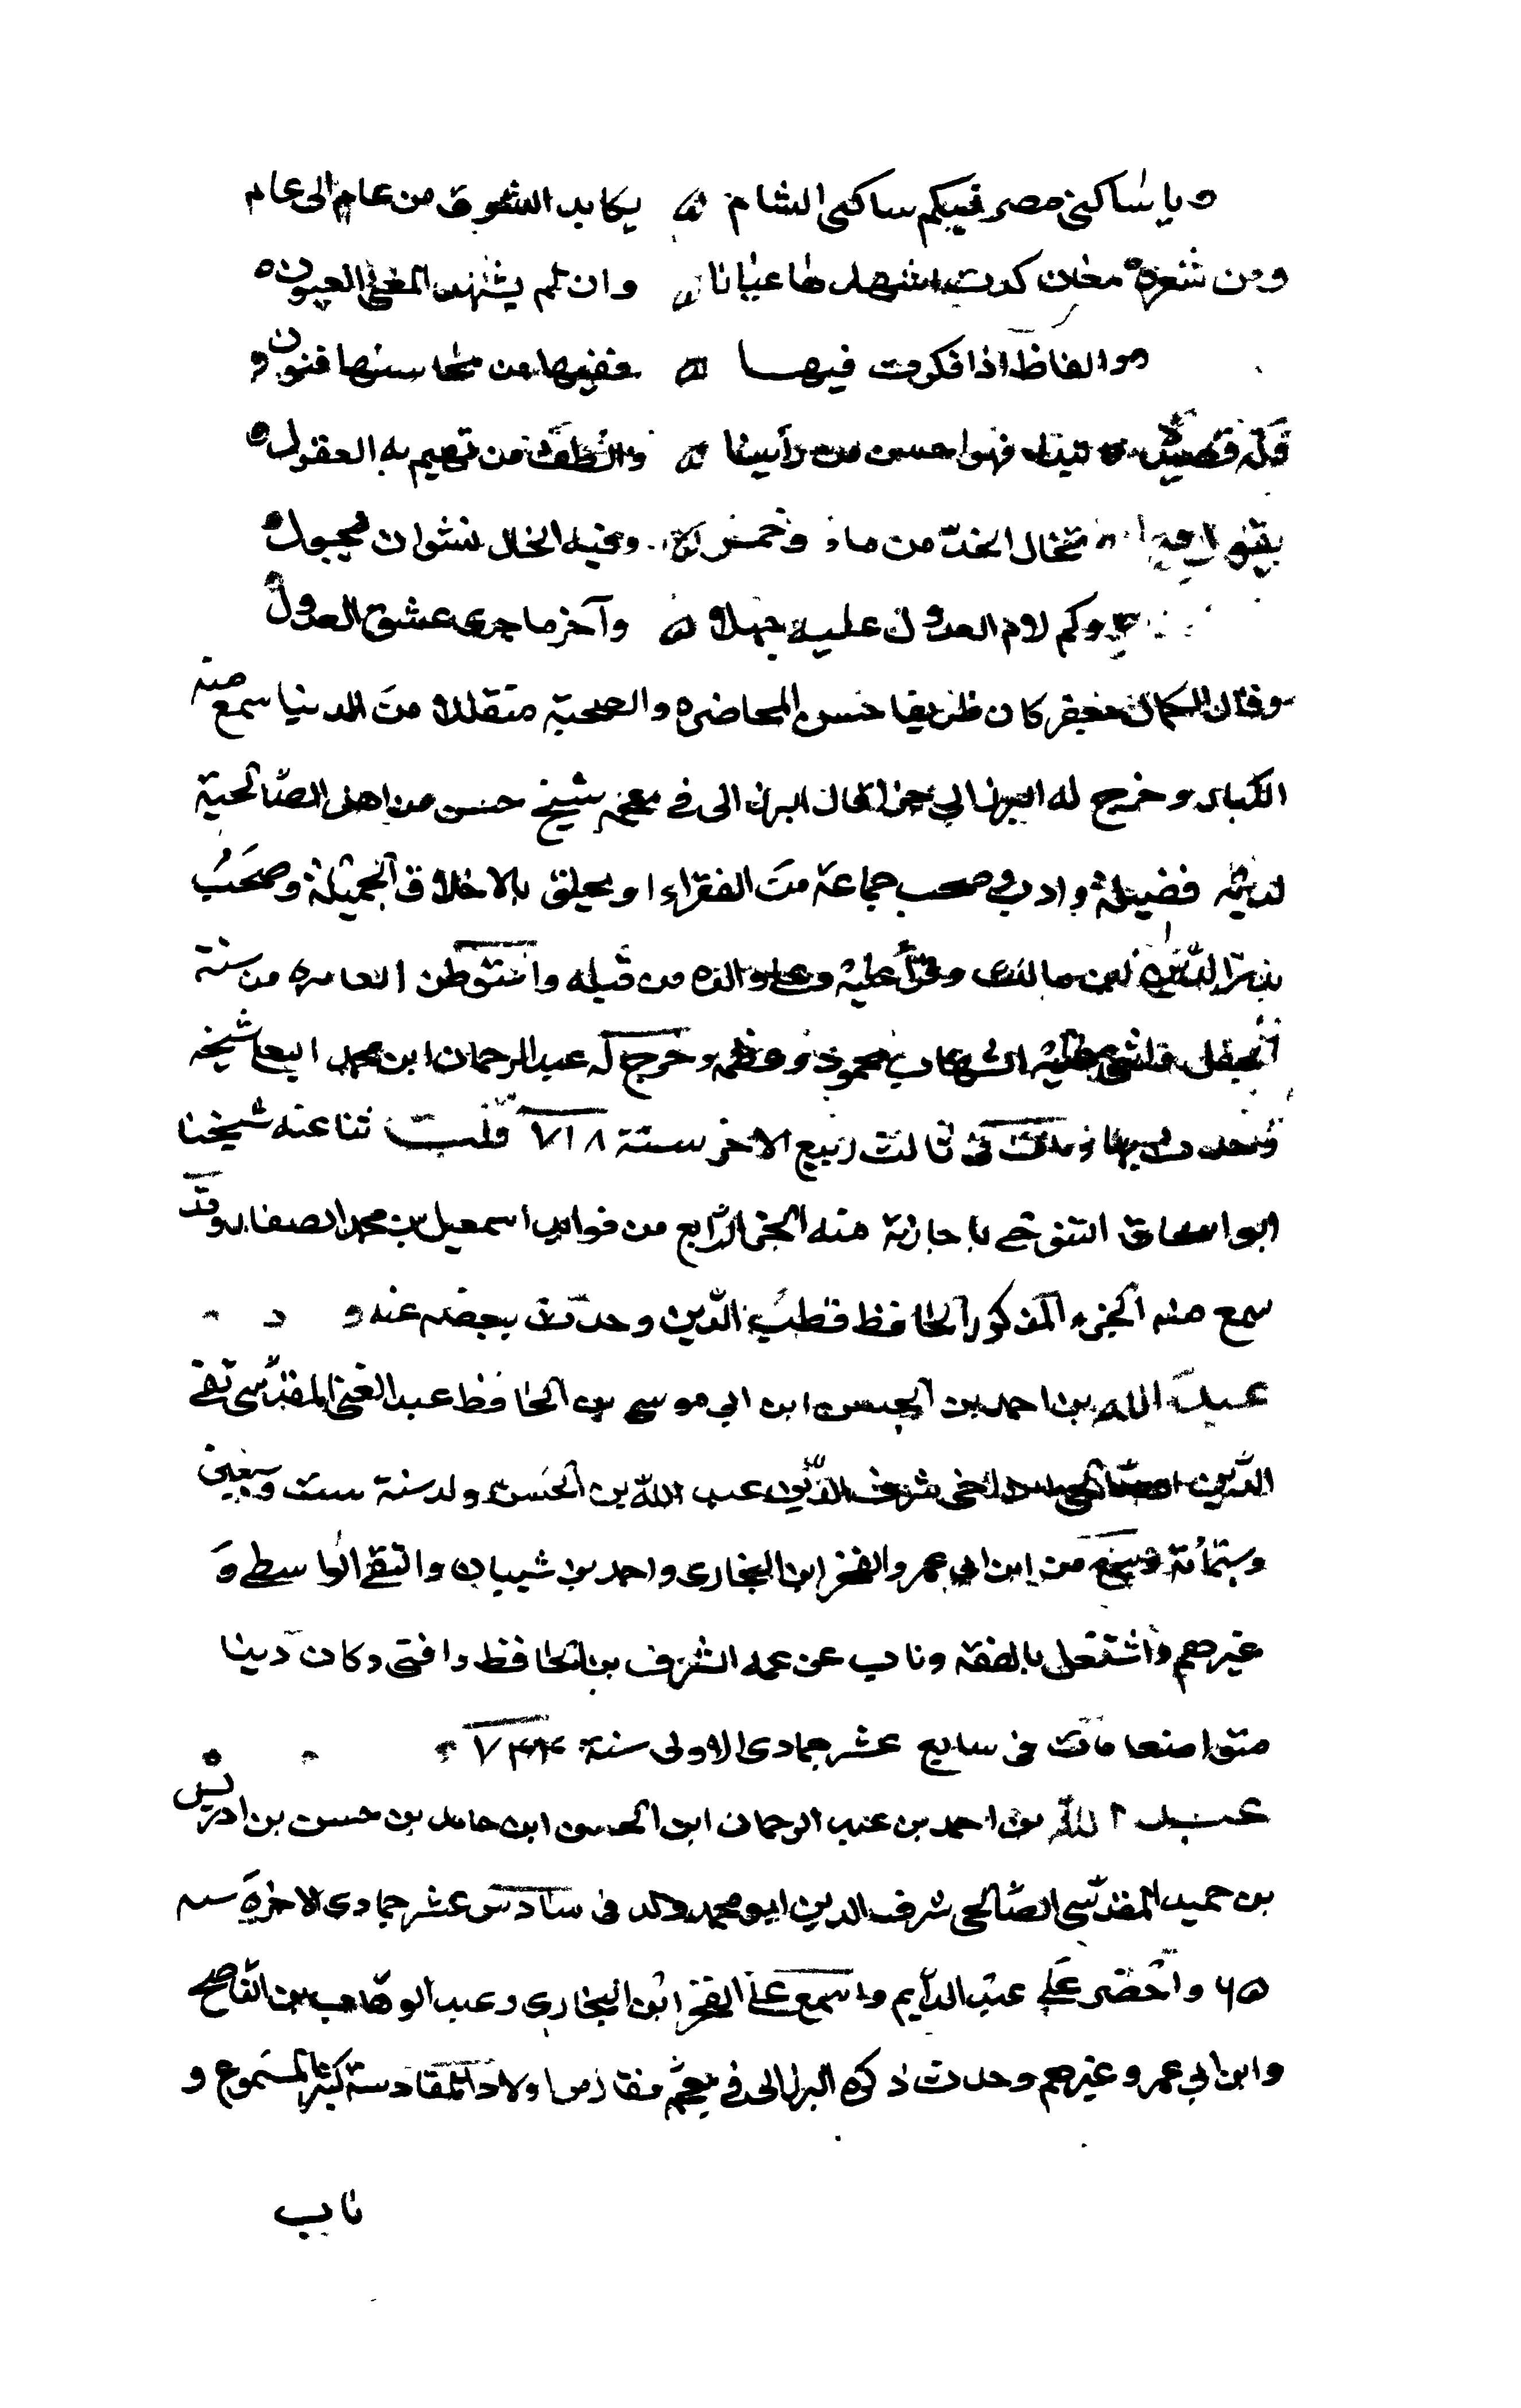 ويا ساكني مصر فيكم ساكني الشام يكابد الشوق من عام الى عام
ومن شعره معان كدت اشهدها عيانا وان لم يشهد المعنى العيون
والفاظ اذا فكرت فيها ففيها من محاسنها فنون
وله قصيدة فهو احسن من رأينا والطف من تهيم به العقول
يقول فيها بخال الخد من ماء وخمر وفيه الخال نشوان يجول
وكم لام العذول عليه جهلا وآخر ما جرى عشق العذول
وقال الكمال جعفر كان ظريفا حسن المحاضره والصحبة متقللا من الدنيا سمع منه
الكبار وخرج له البرزالي جزا قال البرزالى في معجمه شيخ حسن من اهل الصالحية
لديه فضيلة وادب وصحب جماعة من الفقراء او يخلق بالاخلاق الجميلة وصحب
بدر الدين بن مالك وقرأ عليه وعلى والده من قبله واستوطن القاهره من سنة
عليه الشهاب محمود وعظمه وخرج له عبد الرحمان ابن محمد البعل شيخه
وحدث بها ومات في ثالث ربيع الاخر سنة ٧١٨ قلت ثنا عنه شيخنا
ابو اسحاق التنوخي باجازة منه الجزء الرابع من فوايد اسمعيل بن محمد الصفار وقد
سمع منه الجزء المذكور الحافظ قطب الدين وحدث ببعضه عنه
عبد الله بن احمد بن الحسن ابن ابي موسى بن الحافظ عبد الغني المقدسي تقي
الدين ابن اخي شرف الدين عبد الله بن الحسن ولد سنة ست وسبعين
وستمائة وسمع من ابن ابي عمر والفخر ابن البخارى واحمد بن شيبان والتقي الواسطي و
غيرهم واشتغل بالفقه وناب عن عمه الشرف بن الحافظ وافتى وكان دينا
متواضعا مات في سابع عشر جمادى الاولى سنة ٧٤٤
عبد الله بن احمد بن عبد الرحمان ابن الحسن ابن حامد بن حسن بن ادريس
بن حميد المقدسي الصالحي شرف الدين ابو محمد ولد في سادس عشر جمادى الاخرة سنه
٦٥ واحضر على عبد الدايم واسمع على الفخر ابن البخاري وعبد الوهاب بن الناصح
وابن ابي عمر وغيرهم وحدث ذكره البرزالى في معجمه فقال من اولاد المقادسة كثير المسموع و
ناب